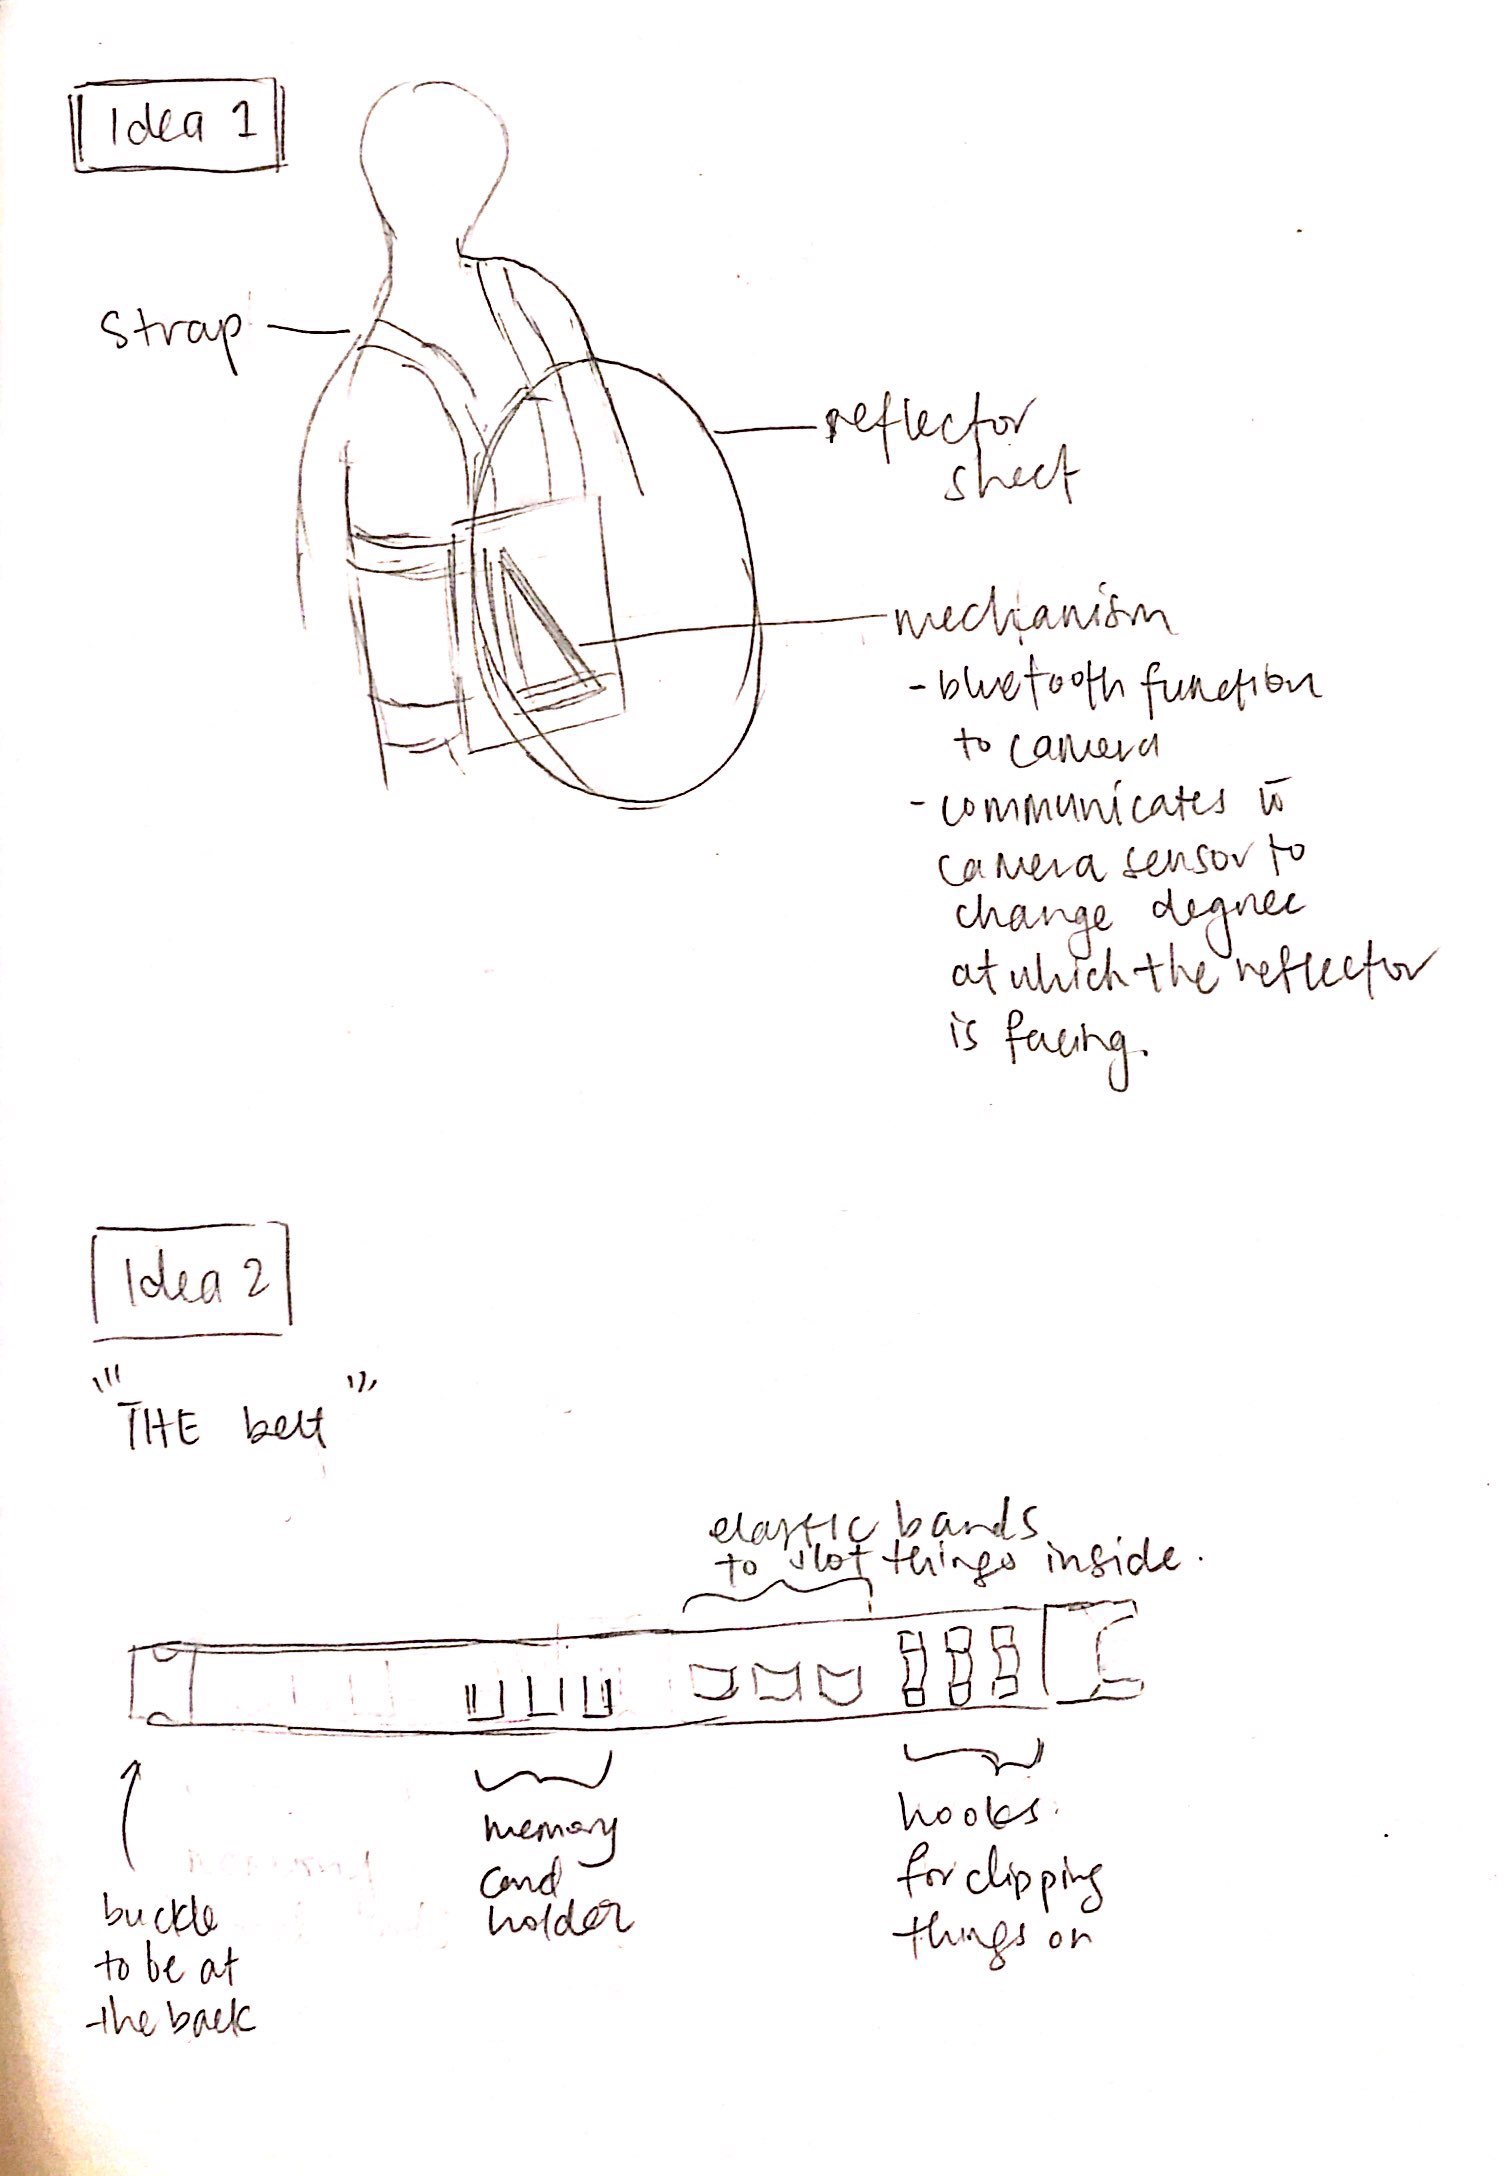 Idea 1
strap
reflector
sheet
mechanism
- bluetooth function
to camera
- communicates to
camera sensor to
change degree
at which the reflector
is facing.
Idea 2
"THE belt"
elastic bands
to slot things inside.
buckle
to be at
the back
memory
card
holder
hooks
for clipping
things on